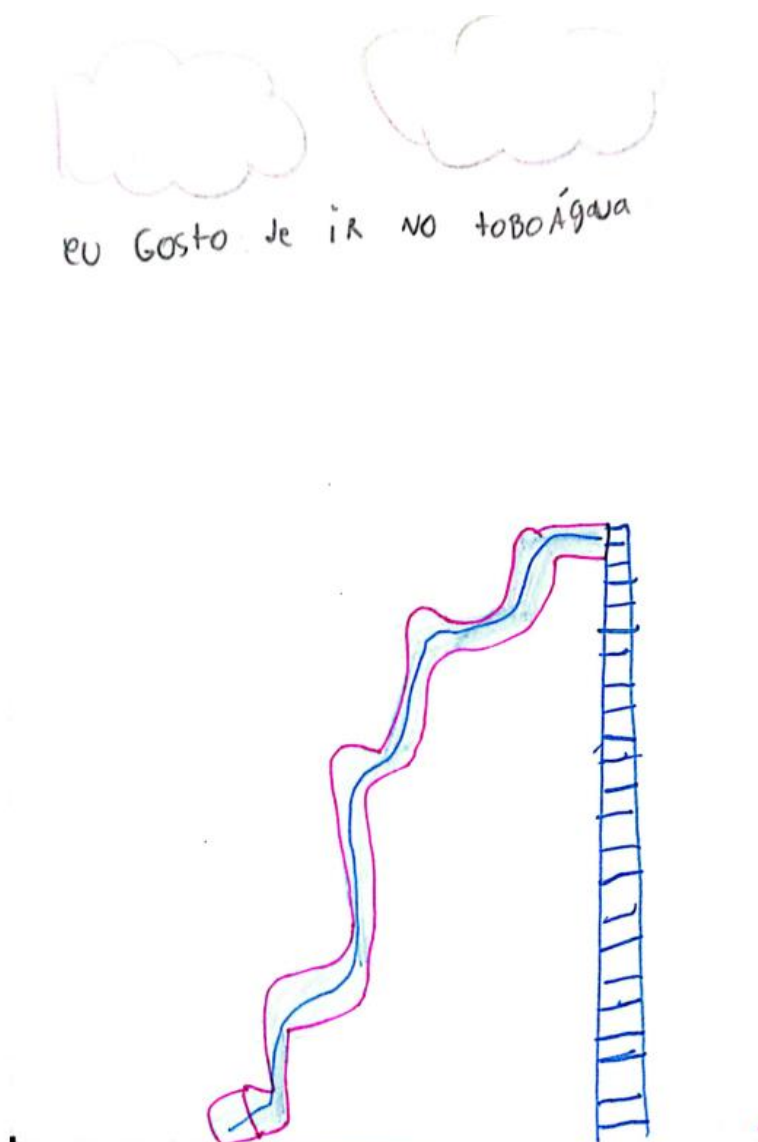 eU GoSto de iR NO toBoÁgaua